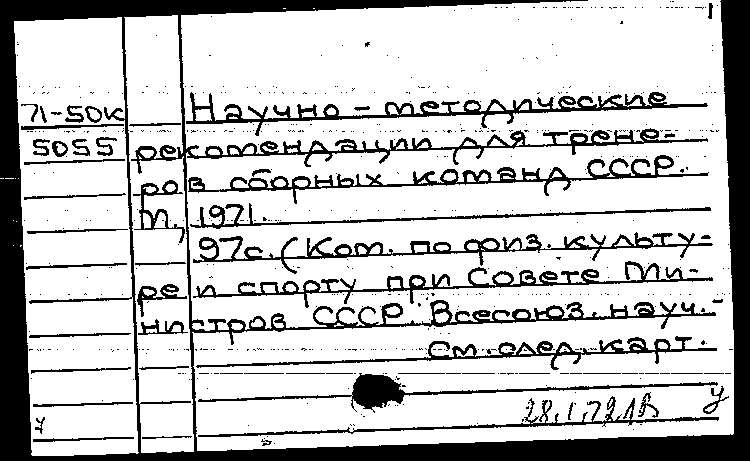 71-50к Научно-методические
5055 рекомендации для трене-
ров сборных команд СССР.
М., 1971.
97с. (Ком. по физ. культу-
ре и спорту при Совете Ми-
нистров СССР. Всесоюз. науч.-
См. след. карт.
28.1.72
у